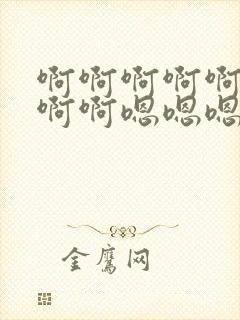 啊啊啊啊啊
啊啊嗯嗯嗯
金鹰网